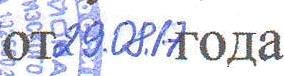 от 29.08.17 года